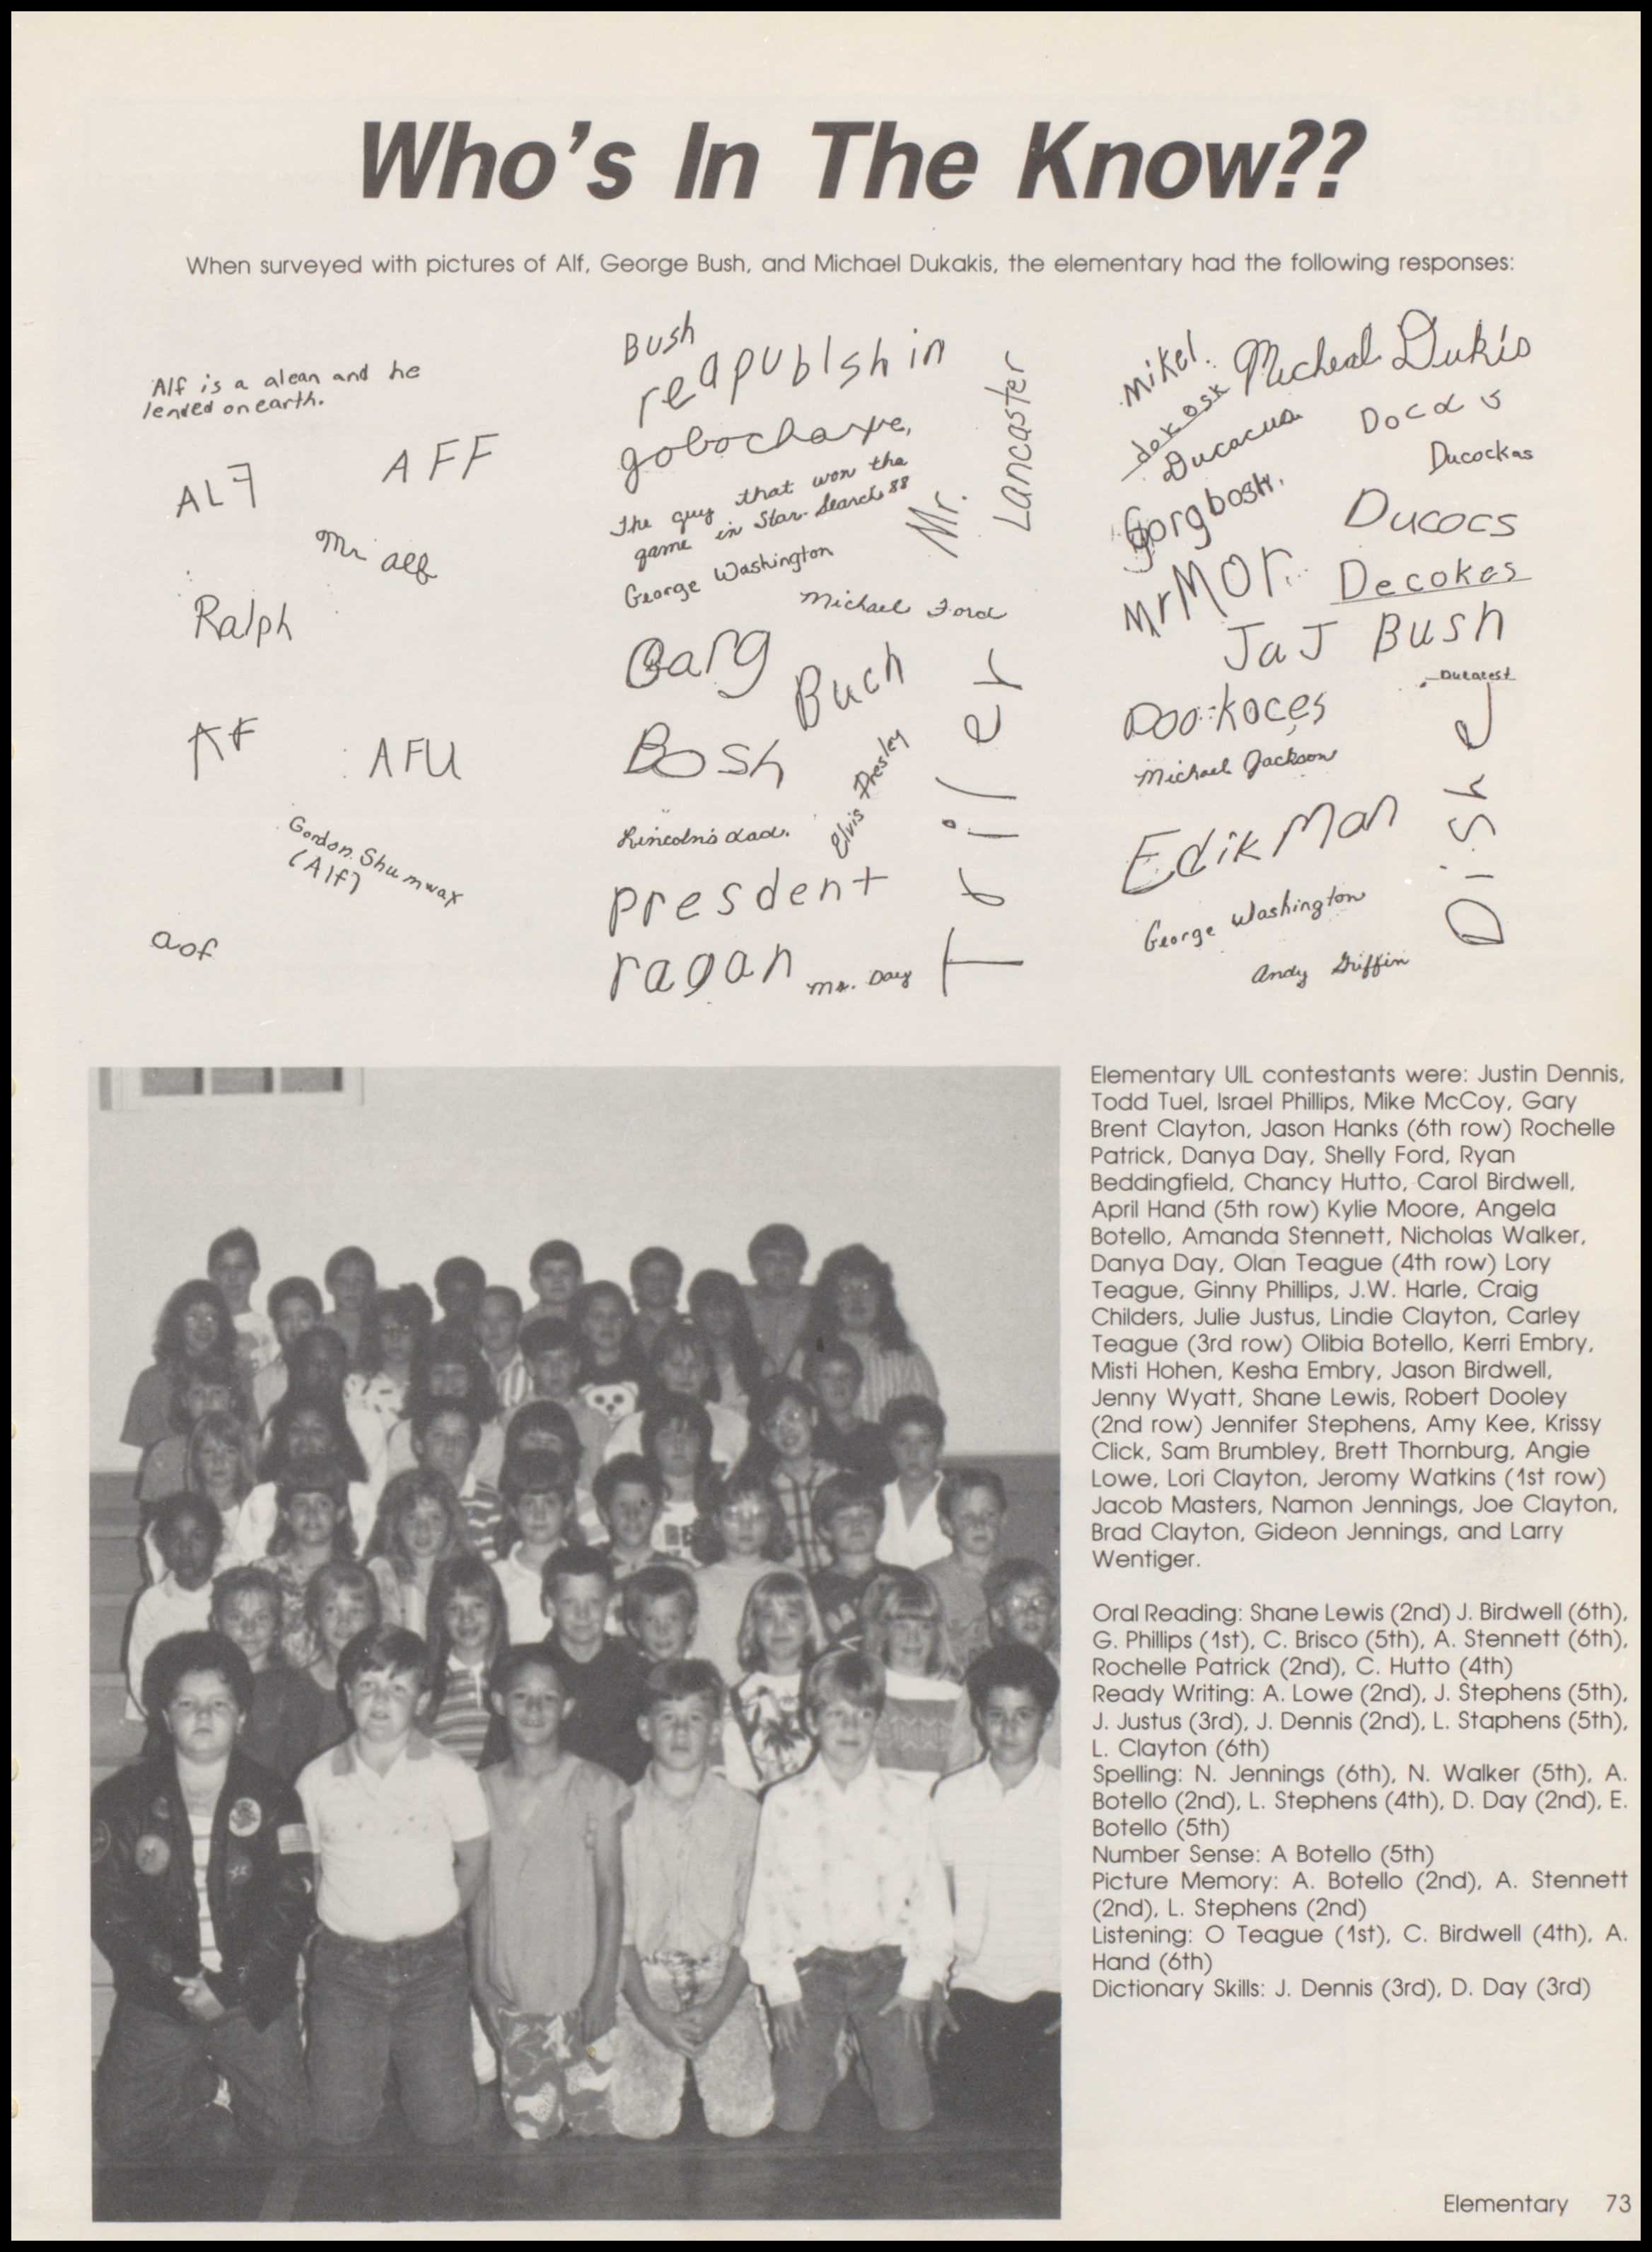 Who's In The Know??
When surveyed with pictures of Alf, George Bush, and Michael Dukakis, the elementary had the following responses:
Alf is a alean and he
lended on earth.
ALF
AFF
Mr alf
Ralph
AF
AFU
Gordon Shumwax
(Alf)
aof
Bush
reapublshin
gobochaxe,
The guy that won the
game in Star Search 88
George Washington
Mr. Lancaster
Michael Ford
Garg
Buch
Bosh
Elvis Presley
Lincoln's dad.
presdent
ragan
Mr. Day
Tailer
Mikel.
dokosk
Micheal Dukis
Ducacus
Docaus
Ducockas
Gorgbosh.
Ducocs
MrMor.
Decokes
JaJ Bush
Ducatest
Dookoces
Michael Jackson
Edik Man
George Washington
Andy Griffin
Elementary UIL contestants were: Justin Dennis,
Todd Tuel, Israel Phillips, Mike McCoy, Gary
Brent Clayton, Jason Hanks (6th row) Rochelle
Patrick, Danya Day, Shelly Ford, Ryan
Beddingfield, Chancy Hutto, Carol Birdwell,
April Hand (5th row) Kylie Moore, Angela
Botello, Amanda Stennett, Nicholas Walker,
Danya Day, Olan Teague (4th row) Lory
Teague, Ginny Phillips, J.W. Harle, Craig
Childers, Julie Justus, Lindie Clayton, Carley
Teague (3rd row) Olibia Botello, Kerri Embry,
Misti Hohen, Kesha Embry, Jason Birdwell,
Jenny Wyatt, Shane Lewis, Robert Dooley
(2nd row) Jennifer Stephens, Amy Kee, Krissy
Click, Sam Brumbley, Brett Thornburg, Angie
Lowe, Lori Clayton, Jeromy Watkins (1st row)
Jacob Masters, Namon Jennings, Joe Clayton,
Brad Clayton, Gideon Jennings, and Larry
Wentiger.
Oral Reading: Shane Lewis (2nd) J. Birdwell (6th),
G. Phillips (1st), C. Brisco (5th), A. Stennett (6th),
Rochelle Patrick (2nd), C. Hutto (4th)
Ready Writing: A. Lowe (2nd), J. Stephens (5th),
J. Justus (3rd), J. Dennis (2nd), L. Staphens (5th),
L. Clayton (6th)
Spelling: N. Jennings (6th), N. Walker (5th), A.
Botello (2nd), L. Stephens (4th), D. Day (2nd), E.
Botello (5th)
Number Sense: A Botello (5th)
Picture Memory: A. Botello (2nd), A. Stennett
(2nd), L. Stephens (2nd)
Listening: O Teague (1st), C. Birdwell (4th), A.
Hand (6th)
Dictionary Skills: J. Dennis (3rd), D. Day (3rd)
Elementary 73